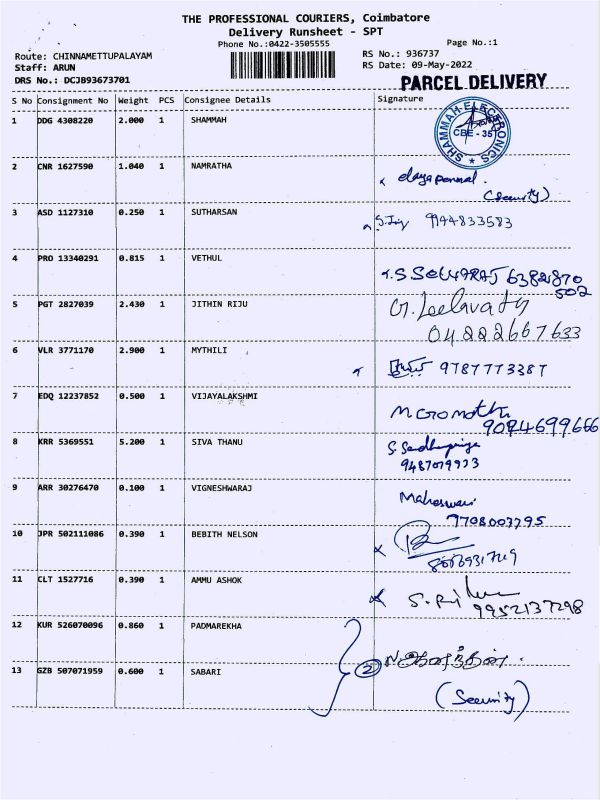 THE PROFESSIONAL COURIERS, Coimbatore
Delivery Runsheet - SPT
Phone No.:0422-3505555
Page No.:1
Route: CHINNAMETTUPALAYAM
RS No.: 936737
Staff: ARUN
RS Date: 09-May-2022
DRS No.: DCJB93673701
PARCEL DELIVERY
S No Consignment No Weight PCS Consignee Details Signature
1 DDG 4308220 2.000 1 SHAMMAH
SHAMMAH ELECTRONICS
CBE - 35
2 CNR 1627590 1.040 1 NAMRATHA
(Security)
3 ASD 1127310 0.250 1 SUTHARSAN
9944833583
4 PRO 13340291 0.815 1 VETHUL
S SELVARAJ 6382870
502
5 PGT 2827039 2.430 1 JITHIN RIJU
G. Leelavathy
04222667633
6 VLR 3771170 2.900 1 MYTHILI
9787773387
7 EDQ 12237852 0.500 1 VIJAYALAKSHMI
9094699666
8 KRR 5369551 5.200 1 SIVA THANU
9487079933
9 ARR 30276470 0.100 1 VIGNESHWARAJ
Maheswari
7708003295
10 JPR 502111086 0.390 1 BEBITH NELSON
11 CLT 1527716 0.390 1 AMMU ASHOK
9952137298
12 KUR 526070096 0.860 1 PADMAREKHA
2
13 GZB 507071959 0.600 1 SABARI
(Security)